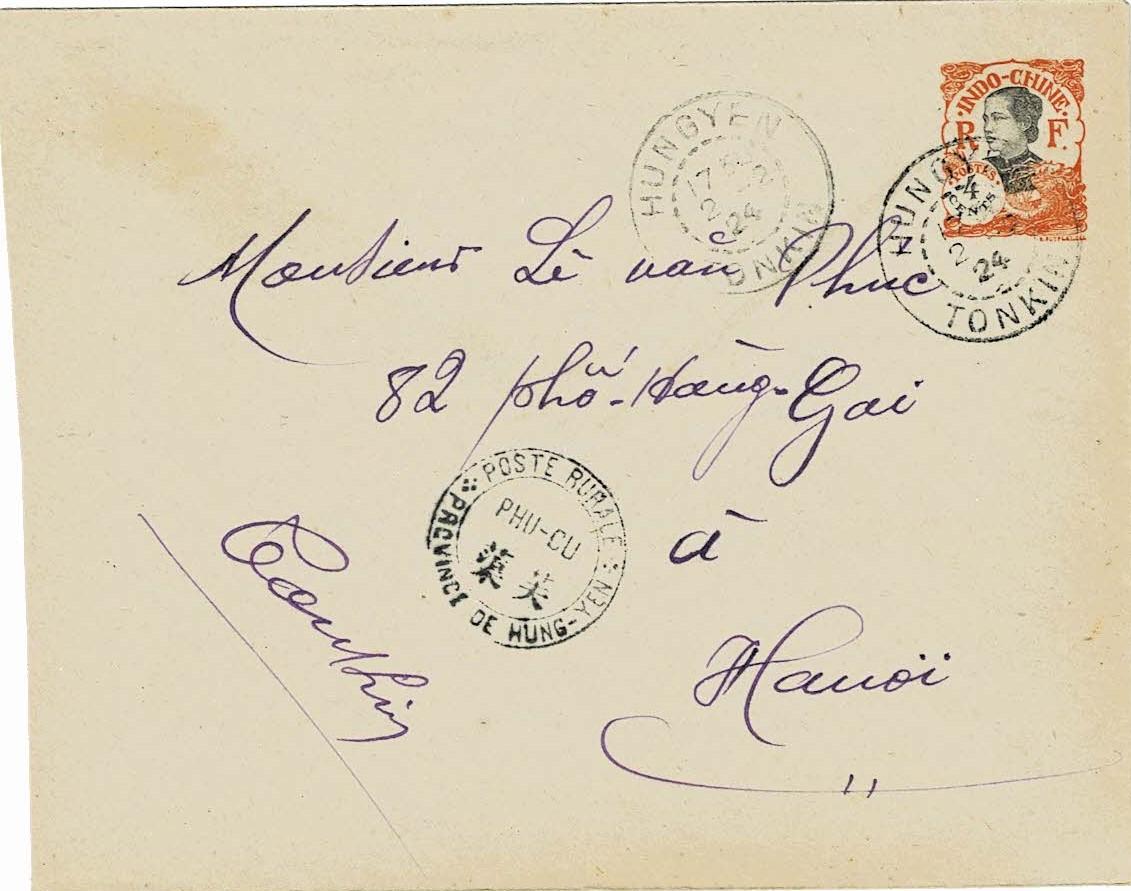 INDO-CHINE
R F.
POSTES
4
CENTS
HUNGYEN
17
2 24
TONKIN
HUNGY
2 24
TONKIN
Monsieur Lê van Phuc
82 phố-Hàng-Gai
à
Hanoï
Tonkin
POSTE RURALE
PHU-CU
蕖芙
PROVINCE DE HUNG-YEN